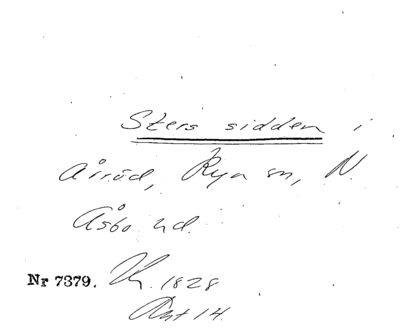 Sters sidden i
Årröd, Rya sn, N.
Åsbo hd.
Nr 7379. Kr. 1828
Akt 14.